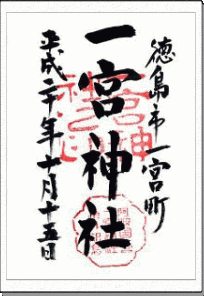 徳島市一宮町
一宮神社
平成二十年十月十五日